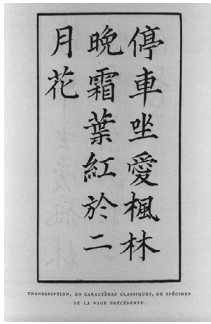 停車坐愛楓林
晚霜葉紅於二
月花
TRANSCRIPTION, EN CARACTÈRES CLASSIQUES, DU SPÉCIMEN
DE LA PAGE PRÉCÉDENTE.